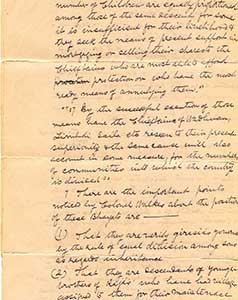 number of Children are equally portioned
among those of the same descent for some
it is insufficient for their livelihood &
they seek the means of present support in
mortgaging or selling their shares to the
Chieftains who are most able to afford
protection or who have the most
ready means of annoying them."
"57 By the successful exertion of those
means have the Chieftains of
to their present
superiority & the same cause will also
account in some measure, for the number
of communities into which the country
is divided."
? These are the important points
noted by Colonel Walker about the position
of these Bhayats are ———
(1) That they are rarely
by the rule of equal division among sons
as regards inheritance
(2) That they are descendants of Younger
brothers of who came had villages
assigned to them for their maintenance